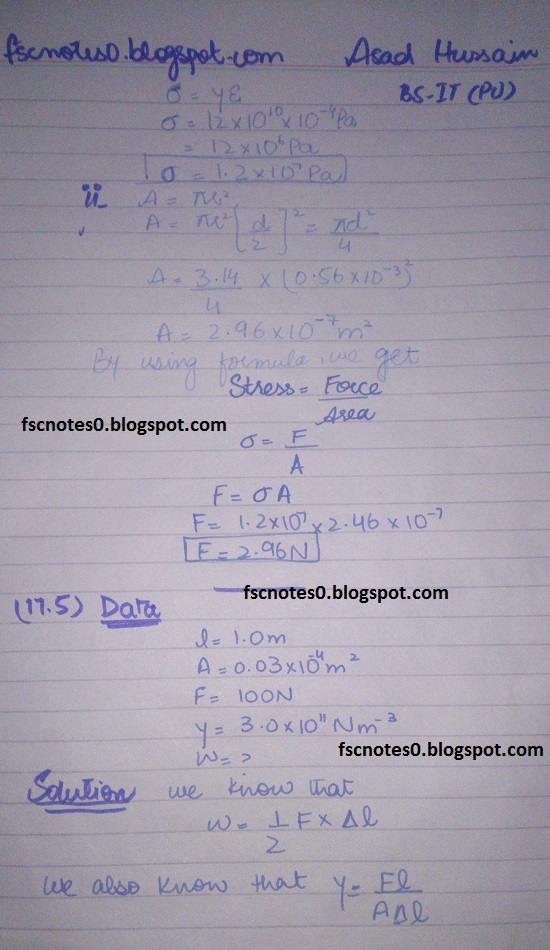 fscnotes0.blogspot.com Asad Hussain
σ = Yε BS-IT (PU)
σ = 12×10¹⁰×10⁻⁴Pa
= 12×10⁶Pa
σ = 1.2×10⁷Pa
ii A = πr²
A = πr²[d/2]² = πd²/4
A = 3.14/4 × (0.56×10⁻³)²
A = 2.96×10⁻⁷m²
By using formula, we get
Stress = Force/Area
fscnotes0.blogspot.com
σ = F/A
F = σA
F = 1.2×10⁷×2.46×10⁻⁷
F = 2.96N
fscnotes0.blogspot.com
(17.5) Data
l = 1.0m
A = 0.03×10⁻⁴m²
F = 100N
Y = 3.0×10¹¹Nm⁻³
fscnotes0.blogspot.com
W = ?
Solution we know that
W = 1/2 F × Δl
We also know that Y = Fl/AΔl